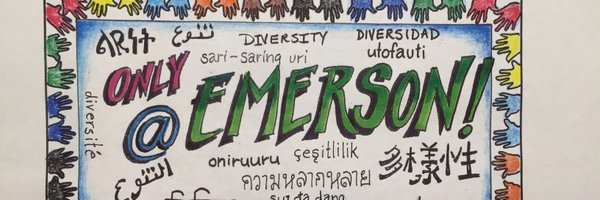 ልዩነት
تنوع
DIVERSITY
DIVERSIDAD
utofauti
sari-saring uri
ONLY
@ EMERSON!
diversité
oniruuru
çeşitlilik
多樣性
التنوع
ความหลากหลาย